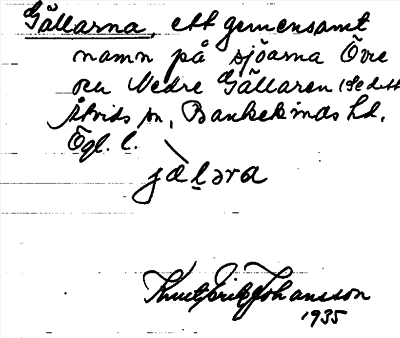 Gällarna, ett gemensamt
namn på sjöarna Övre
och Nedre Gällaren (Se dett
Åtvids sn, Bankekinds hd,
Ögl. l.
jälara
Knut Erik Johansson
1935